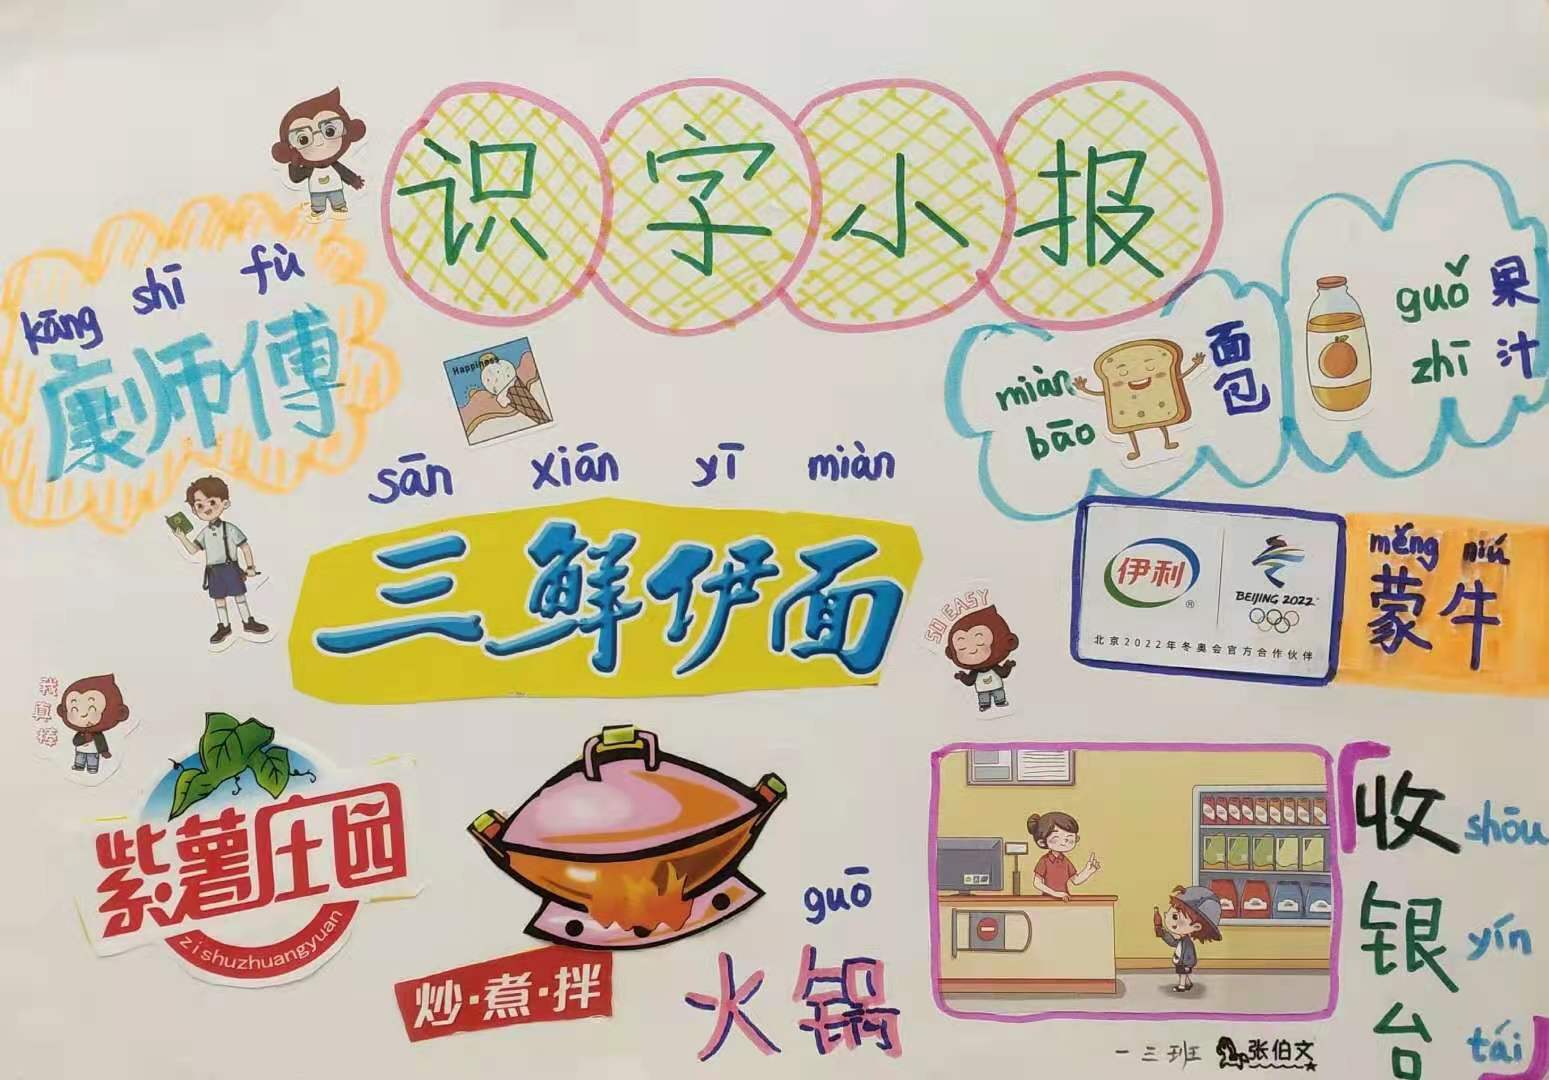 识字小报
kāng shī fù
康师傅
Happiness
miàn
bāo
面包
guǒ 果
zhī 汁
sān xiān yī miàn
三鲜伊面
SO EASY
伊利
®
BEIJING 2022™
北京2022年冬奥会官方合作伙伴
měng niú
蒙牛
我真棒
紫薯庄园
zishuzhuangyuan
炒·煮·拌
guō
火锅
收 shōu
银 yín
台 tái
一三班 张伯文